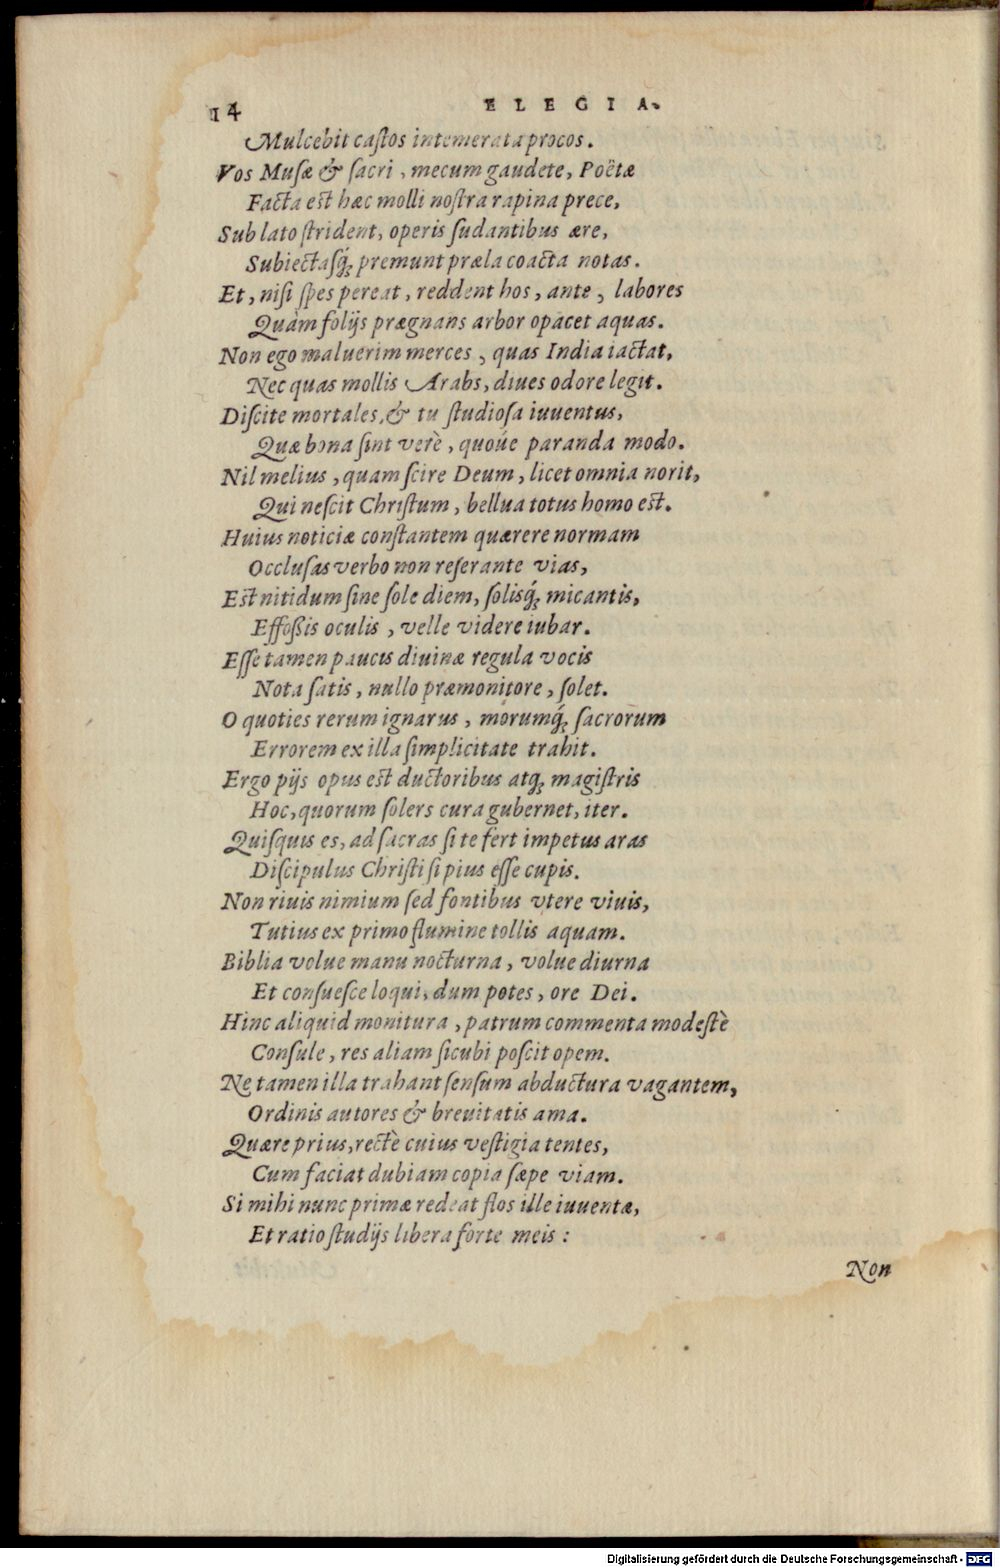 14 ELEGIA.
Mulcebit caſtos intemerata procos.
Vos Muſæ & ſacri, mecum gaudete, Poëtæ
Facta est hæc molli noſtra rapina prece,
Sub lato ſtrident, operis ſudantibus ære,
Subiectaſq́; premunt præla coacta notas.
Et, niſi ſpes pereat, reddent hos, ante, labores
Quàm folijs prægnans arbor opacet aquas.
Non ego maluerim merces, quas India iactat,
Nec quas mollis Arabs, diues odore legit.
Diſcite mortales, & tu ſtudioſa iuuentus,
Quæ bona ſint verè, quoúe paranda modo.
Nil melius, quam ſcire Deum, licet omnia norit,
Qui neſcit Chriſtum, bellua totus homo est.
Huius noticiæ conſtantem quærere normam
Occluſas verbo non reſerante vias,
Est nitidum ſine ſole diem, ſolisq́; micantis,
Effoßis oculis, velle videre iubar.
Eſſe tamen paucis diuinæ regula vocis
Nota ſatis, nullo præmonitore, ſolet.
O quoties rerum ignarus, morumq́; ſacrorum
Errorem ex illa ſimplicitate trahit.
Ergo pijs opus est ductoribus atq; magiſtris
Hoc, quorum ſolers cura gubernet, iter.
Quiſquis es, ad ſacras ſi te fert impetus aras
Diſcipulus Chriſti ſi pius eſſe cupis.
Non riuis nimium ſed fontibus vtere viuis,
Tutius ex primo flumine tollis aquam.
Biblia volue manu nocturna, volue diurna
Et conſueſce loqui, dum potes, ore Dei.
Hinc aliquid monitura, patrum commenta modeſtè
Conſule, res aliam ſicubi poſcit opem.
Ne tamen illa trahant ſenſum abductura vagantem,
Ordinis autores & breuitatis ama.
Quære prius, rectè cuius veſtigia tentes,
Cum faciat dubiam copia ſæpe viam.
Si mihi nunc primæ redeat flos ille iuuentæ,
Et ratio ſtudijs libera forte meis:
Non
Digitalisierung gefördert durch die Deutsche Forschungsgemeinschaft - DFG